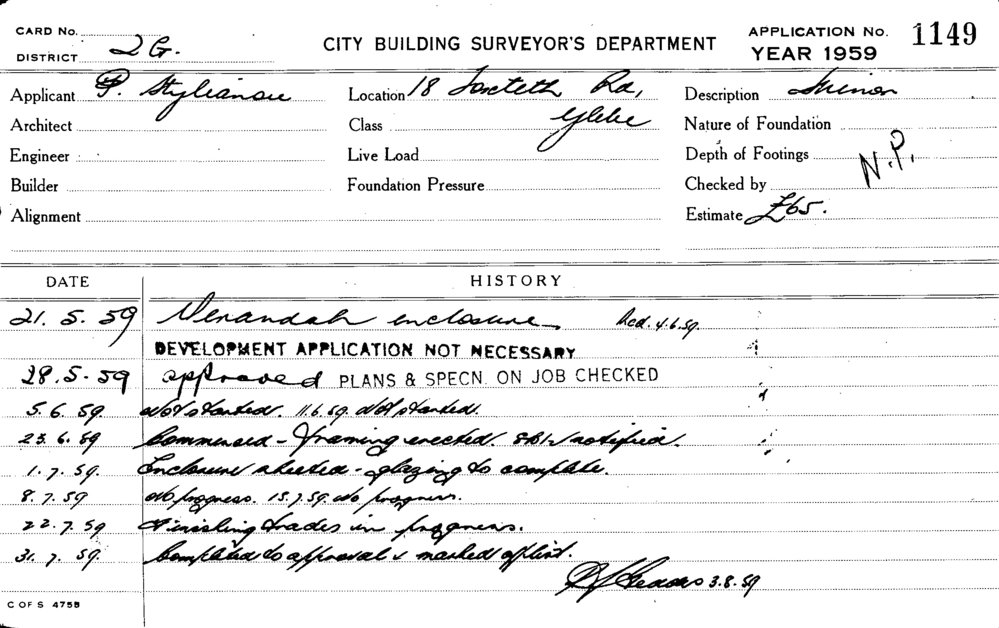 CARD No.
DISTRICT 2G.
CITY BUILDING SURVEYOR'S DEPARTMENT
APPLICATION No. 1149
YEAR 1959
Applicant P. Stylianou Location 18 Toxteth Rd, Description Minor
Architect Class Glebe Nature of Foundation
Engineer Live Load Depth of Footings N.P.
Builder Foundation Pressure Checked by
Alignment Estimate £65.
DATE HISTORY
21. 5. 59 Verandah enclosure Red. 4.6.59.
DEVELOPMENT APPLICATION NOT NECESSARY
28. 5. 59 approved PLANS & SPECN. ON JOB CHECKED
5. 6. 59. Not started. 11.6.59. Not started.
23. 6. 59 Commenced - framing erected. notified.
1. 7. 59. Enclosure sheeted - glazing to complete.
8. 7. 59 No progress. 15.7.59. No progress.
22. 7. 59 Finishing trades in progress.
31. 7. 59. Completed to approval & marked off list.
3.8.59
C OF S 4758